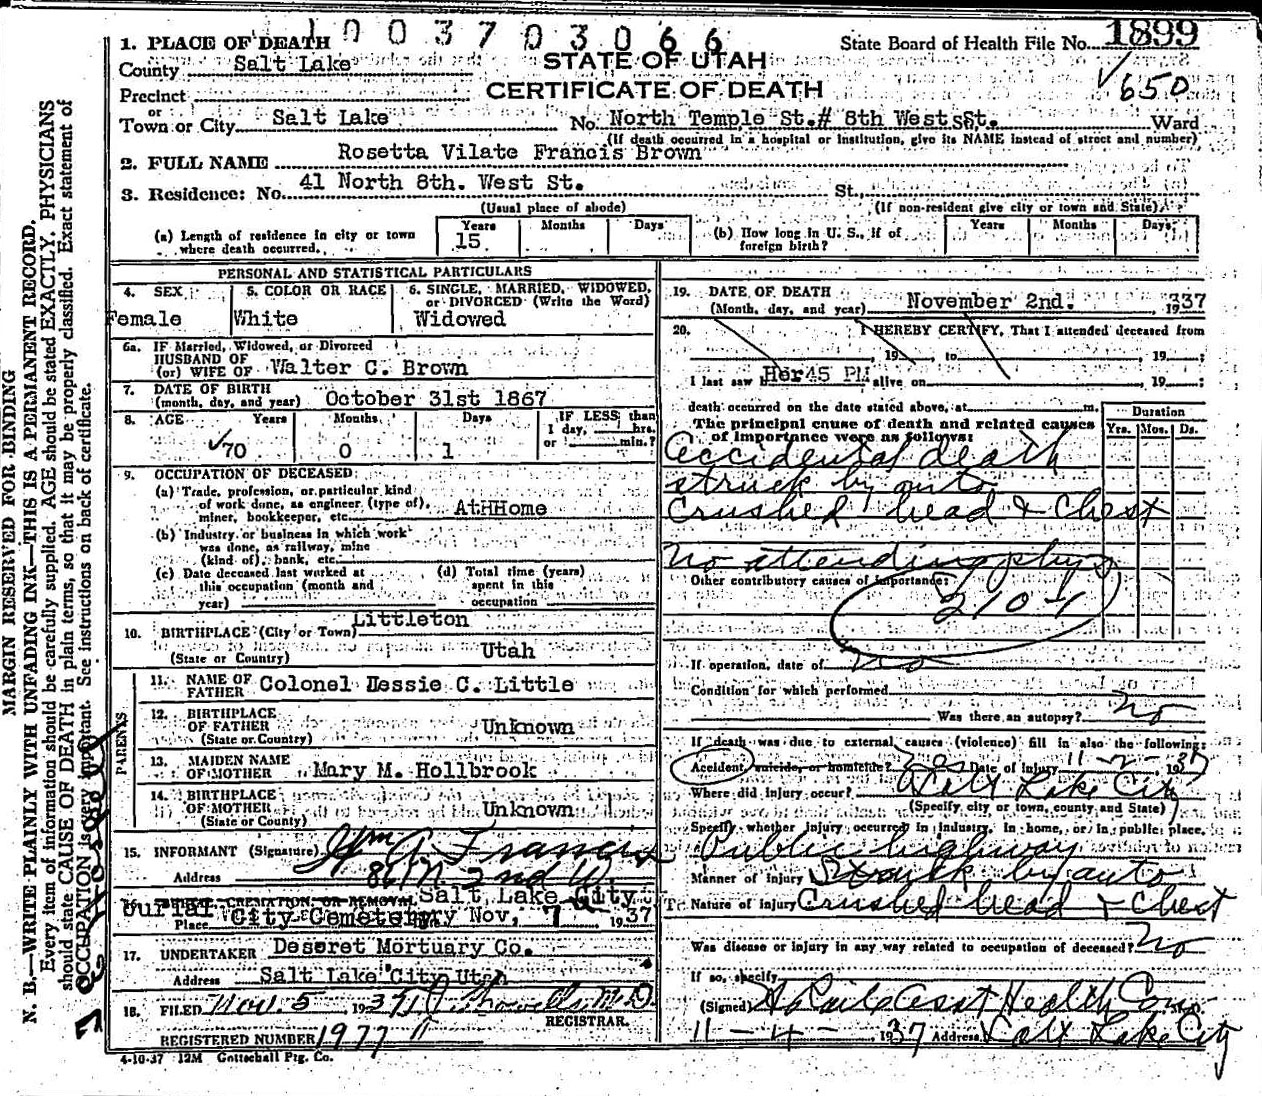 1003703066
1. PLACE OF DEATH
State Board of Health File No. 1899
County Salt Lake
STATE OF UTAH
650
Precinct
CERTIFICATE OF DEATH
or
Town or City Salt Lake No. North Temple St.# 8th West St. St. Ward
(If death occurred in a hospital or institution, give its NAME instead of street and number)
2. FULL NAME Rosetta Vilate Francis Brown
3. Residence: No. 41 North 8th. West St. St.
(Usual place of abode) (If non-resident give city or town and State)
(a) Length of residence in city or town where death occurred. Years 15 Months Days
(b) How long in U. S., if of foreign birth? Years Months Days
PERSONAL AND STATISTICAL PARTICULARS
4. SEX Female
5. COLOR OR RACE White
6. SINGLE, MARRIED, WIDOWED, or DIVORCED (Write the Word) Widowed
6a. IF Married, Widowed, or Divorced
HUSBAND OF
(or) WIFE OF Walter C. Brown
7. DATE OF BIRTH
(month, day, and year) October 31st 1867
8. AGE Years 70 Months 0 Days 1 IF LESS than 1 day, hrs. or min.?
9. OCCUPATION OF DECEASED:
(a) Trade, profession, or particular kind
of work done, as engineer (type of),
miner, bookkeeper, etc. AtHHome
(b) Industry or business in which work
was done, as railway, mine
(kind of), bank, etc.
(c) Date deceased last worked at
this occupation (month and
year)
(d) Total time (years)
spent in this
occupation
10. BIRTHPLACE (City or Town) Littleton
(State or Country) Utah
PARENTS
11. NAME OF
FATHER Colonel Jessie C. Little
12. BIRTHPLACE
OF FATHER
(State or Country) Unknown
13. MAIDEN NAME
OF MOTHER Mary M. Hollbrook
14. BIRTHPLACE
OF MOTHER
(State or County) Unknown
15. INFORMANT (Signature) Wm A Francis
Address 86 N 2nd W Salt Lake City
16. BURIAL, CREMATION, OR REMOVAL
Burial
Place City Cemetery Nov. 7 1937
17. UNDERTAKER Deseret Mortuary Co.
Address Salt Lake City Utah
18. FILED Nov. 5 1937 M.D.
REGISTRAR.
REGISTERED NUMBER 1977
4-10-37 12M Gottschall Ptg. Co.
19. DATE OF DEATH
(Month, day, and year) November 2nd. 1937
20. I HEREBY CERTIFY, That I attended deceased from
, 19 , to , 19 ;
I last saw Her45 PM alive on , 19 ;
death occurred on the date stated above, at m.
The principal cause of death and related causes
of importance were as follows:
Duration
Yrs. Mos. Ds.
Accidental death
struck by auto
Crushed head & Chest
No attending phys
Other contributory causes of importance:
210-1
If operation, date of no
Condition for which performed
Was there an autopsy? no
If death was due to external causes (violence) fill in also the following:
Accident, suicide, or homicide? Date of injury 11-2-, 1937
Where did injury occur? Salt Lake City
(Specify city or town, county and State)
Specify whether injury occurred in industry, in home, or in public place.
Public highway
Manner of injury Struck by auto
Nature of injury Crushed head & Chest
Was disease or injury in any way related to occupation of deceased? No
If so, specify
(Signed) Asst Health Com. M.D.
11-4-, 1937 Address Salt Lake City
MARGIN RESERVED FOR BINDING
N. B.—WRITE PLAINLY WITH UNFADING INK—THIS IS A PERMANENT RECORD.
Every item of information should be carefully supplied. AGE should be stated EXACTLY. PHYSICIANS
should state CAUSE OF DEATH in plain terms, so that it may be properly classified. Exact statement of
OCCUPATION is very important. See instructions on back of certificate.